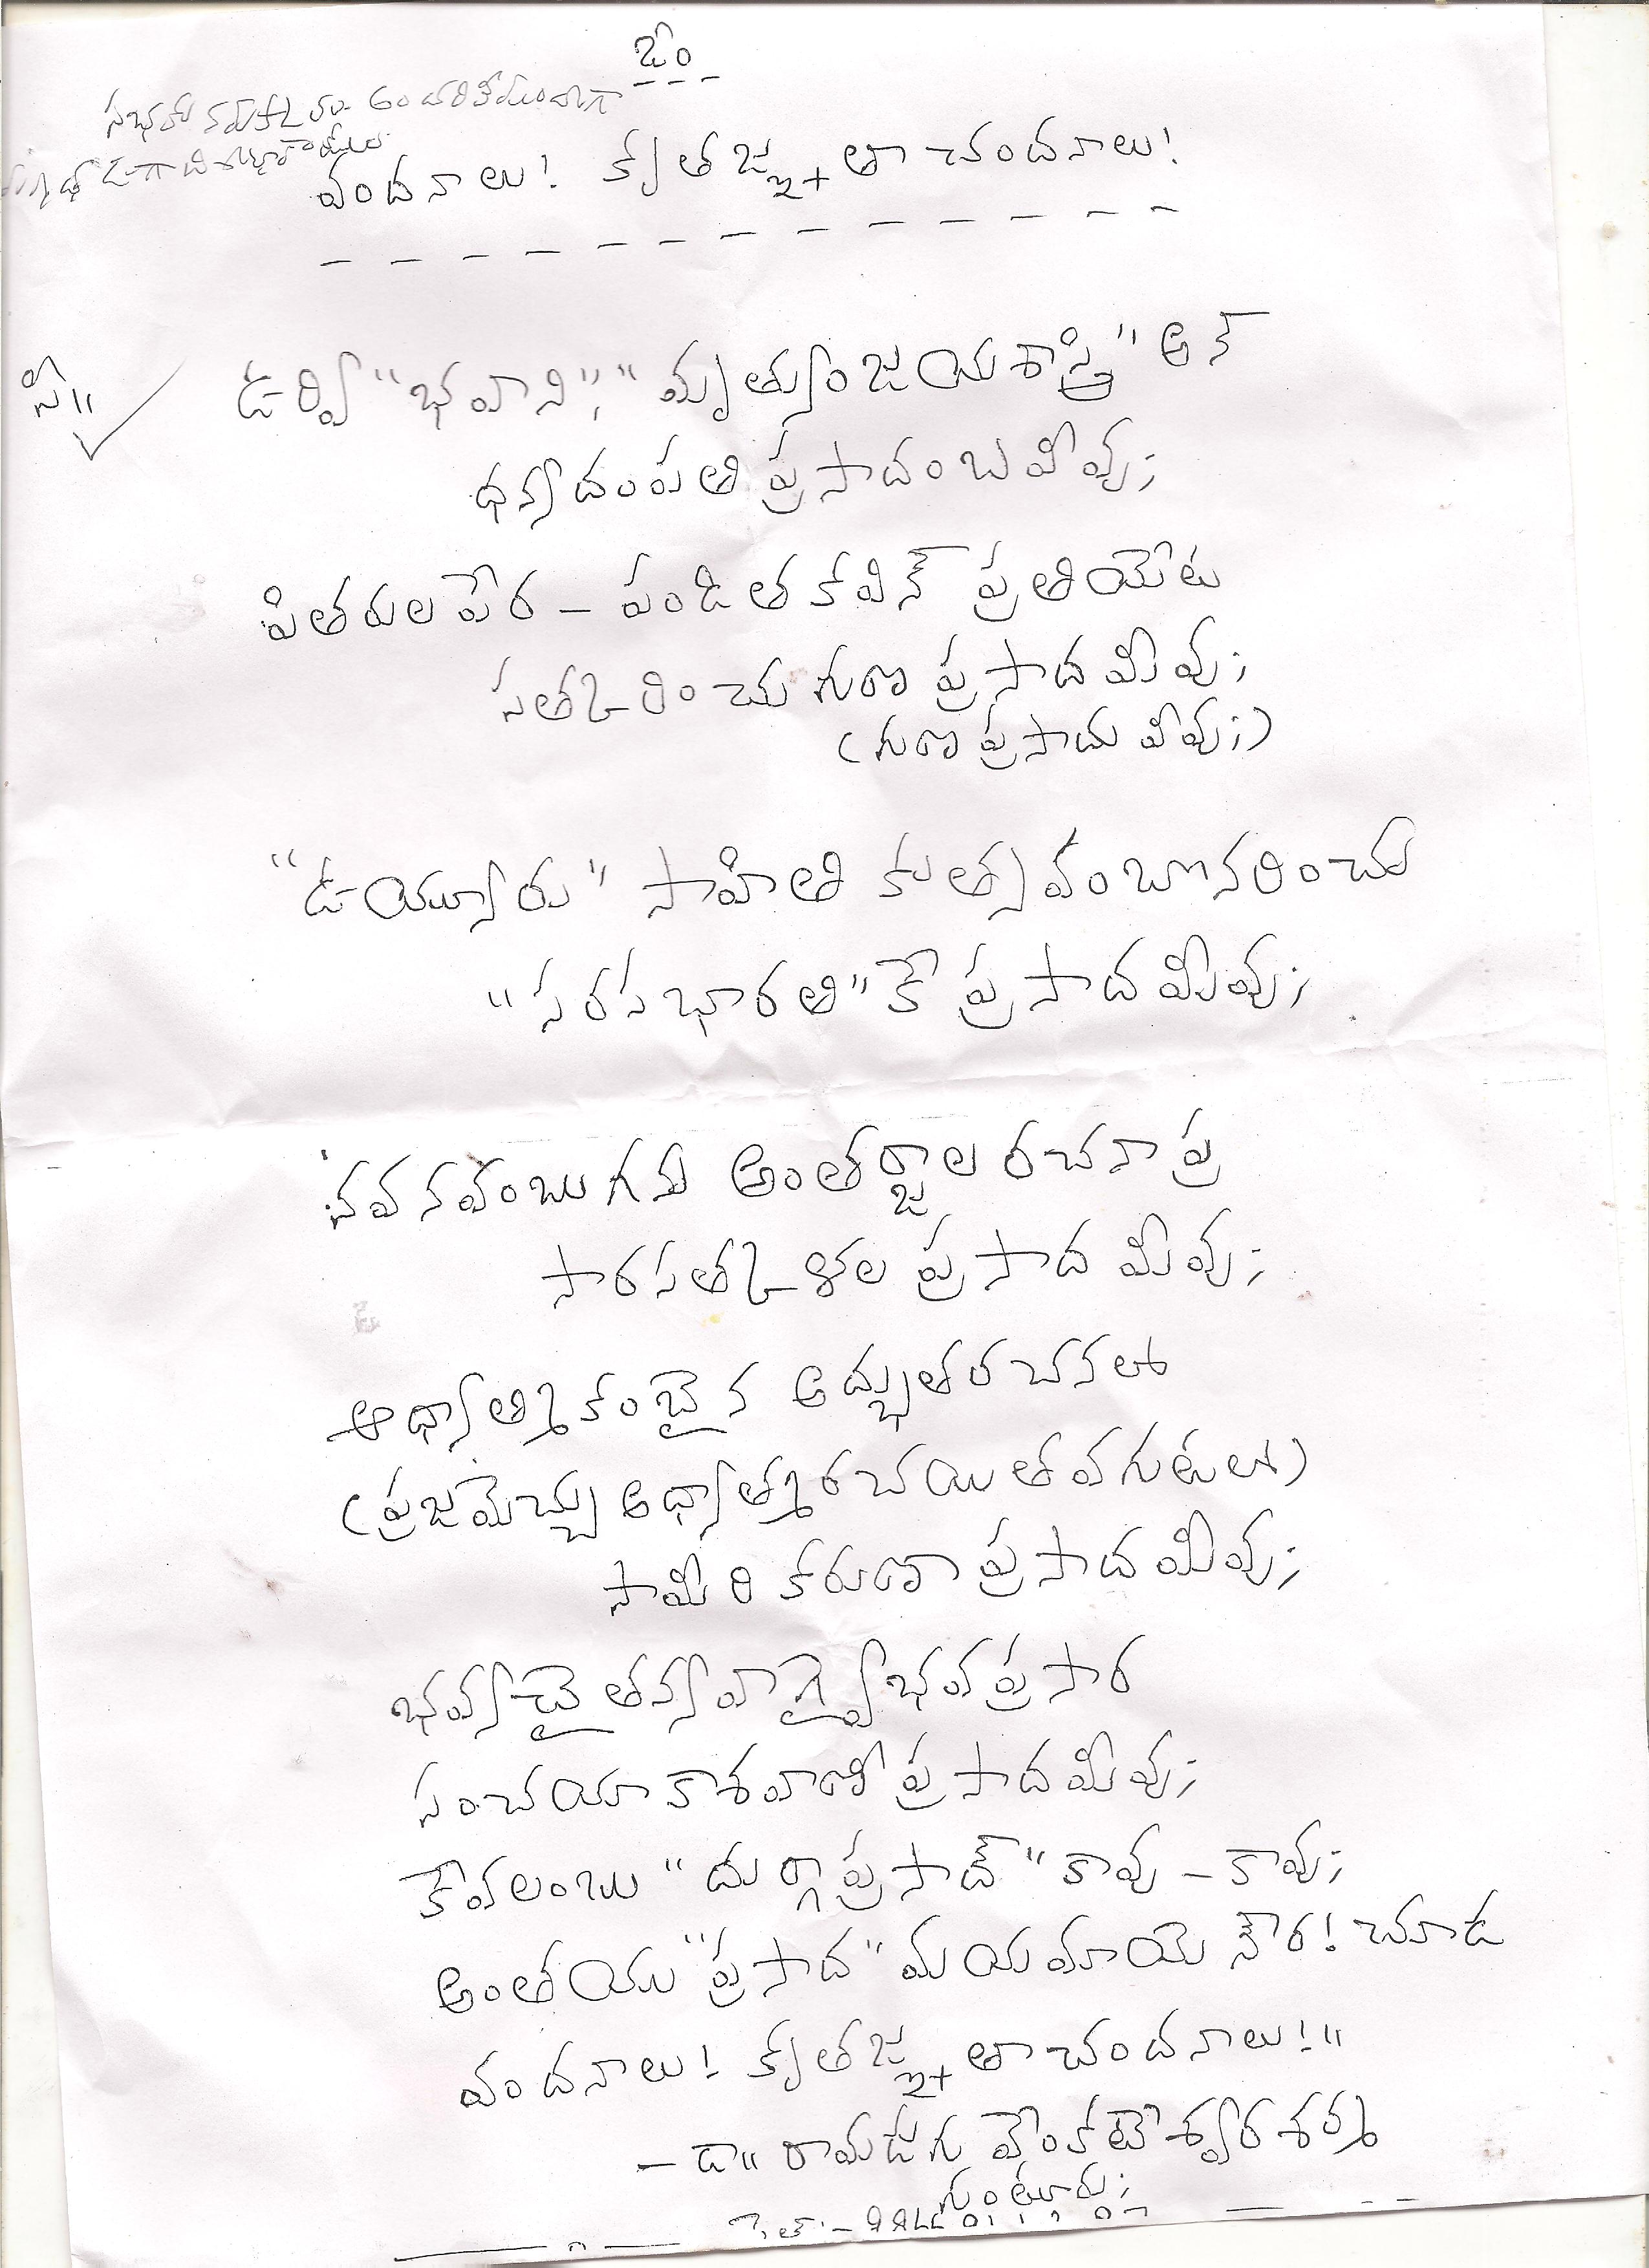 ఓం
వందనాలు! కృతజ్ఞతా చందనాలు!
సీ॥
ఉర్వి "భవాని", "మృత్యుంజయశాస్త్రి" అన్
ధన్యదంపతి ప్రసాదంబవీవు;
పితరుల పేర - పండిత కవిన్ ప్రతియేట
సత్కరించు గుణ ప్రసాద మీవు;
(గుణ ప్రసాదు వీవు;)
"ఉయ్యూరు" సాహితి కుత్సవంబొనరించు
"సరసభారతి"కే ప్రసాద మీవు;
నవనవంబుగను అంతర్జాల రచనా ప్ర
సార సత్కళల ప్రసాద మీవు;
ఆధ్యాత్మికంబైన అద్భుత రచనలో
(ప్రజమెచ్చు ఆధ్యాత్మ రచయిత వగుటలో)
సామీరి కరుణా ప్రసాద మీవు;
భవ్యచైతన్యవాగ్వైభవప్రసార
సంచయాకాశవాణీ ప్రసాద మీవు;
కేవలంబు "దుర్గాప్రసాద్" కావు - కావు;
అంతయు "ప్రసాద" మయమాయె నౌర! చూడ
వందనాలు! కృతజ్ఞతా చందనాలు!॥
- డా॥ రామడుగు వేంకటేశ్వరశర్మ
గుంటూరు;